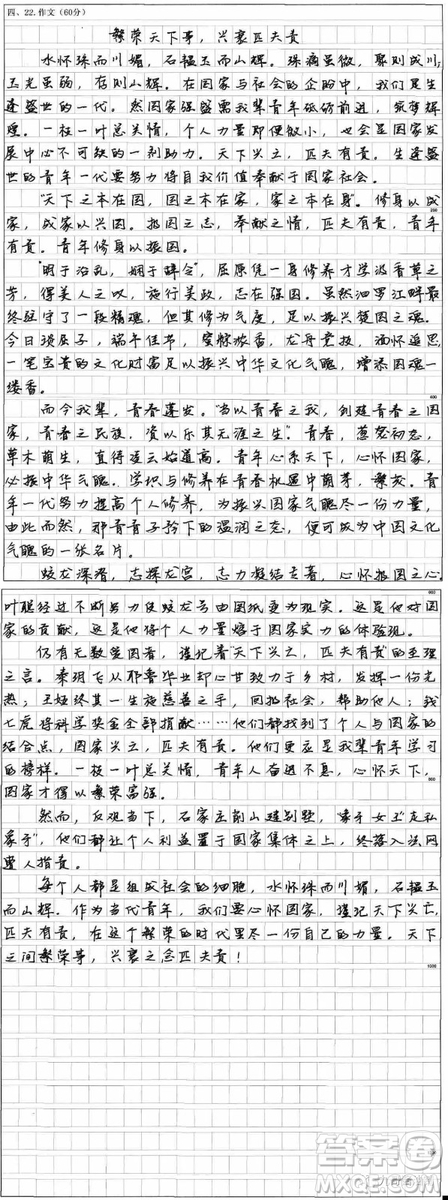 四、22.作文(60分)
繁荣天下事，兴衰匹夫责
水怀珠而川媚，石韫玉而山辉。珠滴虽微，聚则成川；
玉光虽弱，存则山辉。在国家与社会的企盼中，我们是生
逢盛世的一代。然国家强盛需我辈青年砥砺前进，筑梦辉
煌。一枝一叶总关情，个人力量即便微小，也会是国家发
展中必不可缺的一剂助力。天下兴亡，匹夫有责。生逢盛
世的青年一代要努力将自我价值奉献于国家社会。
“天下之本在国，国之本在家，家之本在身”。修身以成
家，成家以兴国。报国之志，奉献之情，匹夫有责，青年
有责。青年修身以振国。
“明于治乱，娴于辞令”，屈原凭一身修养才学汲香草之
芳，得美人之叹，施行美政，志在强国。虽然汨罗江畔最
终驻守了一段精魂，但其修为气度，足以振兴楚国之魂。
今日谈屈子，端午佳节，粽散浓香，龙舟竞技，缅怀追思
一笔宝贵的文化财富足以振兴中华文化气魄，增添国魂一
缕香。
400
而今我辈，青春蓬发。“当以青春之我，创建青春之国
家，青春之民族，资以乐其无涯之生”。青春，葱茏初态，
草木萌生，直待凌云始道高。青年心系天下，心怀国家，
必振中华气魄。学识与修养在青春机遇中萌芽，繁茂。青
年一代努力提高个人修养，为振兴国家气魄尽一份力量，
由此而然，那青青子衿下的温润之态，便可成为中国文化
气魄的一张名片。
蛟龙深潜，志择龙宫，志力凝结走着，心怀报国之心
600
叶聪经过不断努力使蛟龙号由图纸变为现实。这是他对国
家的贡献，这是他将个人力量熔于国家实力的体验现。
仍有无数爱国者，谨记着“天下兴亡，匹夫有责”的至理
之言。秦玥飞从耶鲁毕业却心甘致力于乡村，发挥一份光
热；王 终其一生施慈善之手，回报社会，帮助他人；钱
七虎将科学奖金全部捐献……他们都找到了个人与国家的
结合点，国家兴亡，匹夫有责。他们更应是我辈青年学习
的榜样。一枝一叶总关情，青年人奋进不息，心怀天下，
国家才得以繁荣富强。
800
然而，反观当下，石家庄削山造别墅，“牵手女王”龙私
家子”，他们都让个人利益置于国家集体之上，终落入法网
遭人指责。
每个人都是组成社会的细胞，水怀珠而川媚，石韫玉
而山辉。作为当代青年，我们要心怀国家，谨记天下兴亡，
匹夫有责，在这个繁荣的时代里尽一份自己的力量。天下
之间繁荣事，兴衰之念匹夫责！
1000
答案圈